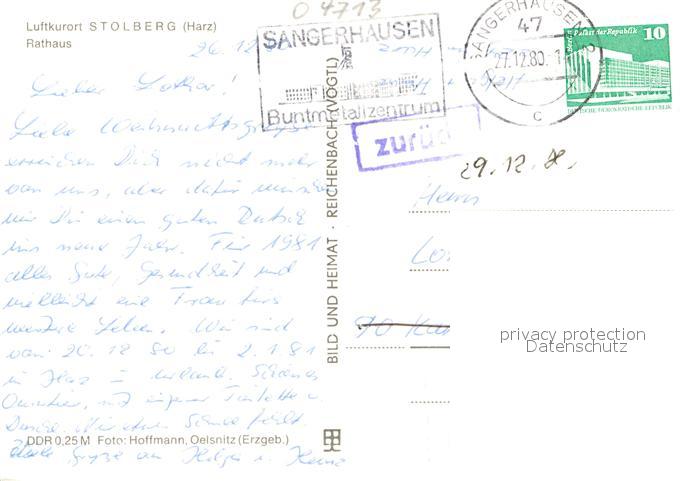 Luftkurort STOLBERG (Harz)
Rathaus
04713
26.12.80
SANGERHAUSEN
Buntmetallzentrum
SANGERHAUSEN 2
47
27.12.80-1
c
Palast der Republik
10
DEUTSCHE DEMOKRATISCHE REPUBLIK
zurück
29.12.8.
Lieber Lothar!
Liebe Weihnachtsgrüße
erreichen Dich nicht mehr
von uns, aber dafür wünschen
wir Dir einen guten Rutsch
ins neue Jahr. Für 1981
alles Gute, Gesundheit und
vielleicht eine Frau fürs
weitere Leben. Wir sind
vom 20.12.80 bis 2.1.81
im Harz in Urlaub. Schönes
Quartier, mit eigener Toilette u.
Dusche. Nur etwas Schnee fehlt.
Viele Grüße von Helga u. Heinz
Herrn
Lo
90 Ka
BILD UND HEIMAT · REICHENBACH (VOGTL)
DDR 0,25 M Foto: Hoffmann, Oelsnitz (Erzgeb.)
privacy protection
Datenschutz